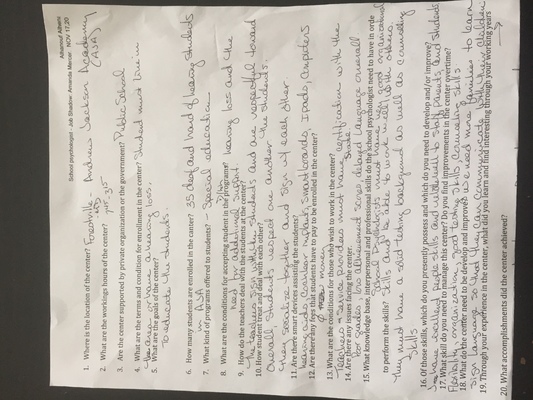 Alhanouf Alharbi
School psychologist - Job Shadow: Amanda Mercer NOV 17.20
1. Where is the location of the center? Forestville - Andrew Jackson Academy
(AJA)
2. What are the workings hours of the center?
3. Are the center supported by private organization or the government? Public School
4. What are the terms and condition for enrollment in the center? Student must live in
the area & have a hearing loss.
5. What are the goals of the center?
To educate the students
6. How many students are enrolled in the center? 35 deaf and hard of hearing students
in AJA
7. What kind of programs offered to students? - Special education
8. What are the conditions for excepting student in the programs? hearing loss and the
need for additional support
9. How do the teachers deal with the students at the center?
The teachers sign with the students and are respectful toward
10. How student treat and deal with each other? the students.
Overall students respect one another
they socialize together and sign w/ each other.
11. Are there smart devices assisting the students?
hearing aids, Cochlear implants, smartboards, Ipads, Computers
12. Are there any fees that students have to pay to be enrolled in the center?
money
13. What are the conditions for those who wish to work in the center?
Teachers & service providers must have certification with the
14. Are there any issues facing the center? State
low grades, low achievement scores, delayed language overall
15. What knowledge base, interpersonal and professional skills do the school psychologist need to have in order
to perform the skills?
Skills and be able to work well with others.
They must have a solid testing background as well as counseling
Skills
16. Of those skills, which do you presently possess and which do you need to develop and/or improve?
17. What skill do you need to manage this center? Do you find improvements in the center overtime?
Flexibility, organization, good testing skills, counseling skills
18. What do the center need to be develop and improved? We need more families to learn
sign language so they can communicate with their children
19. Through your experience in the center, what did you learn and find interesting through your working years
20. What accomplishments did the center achieved?